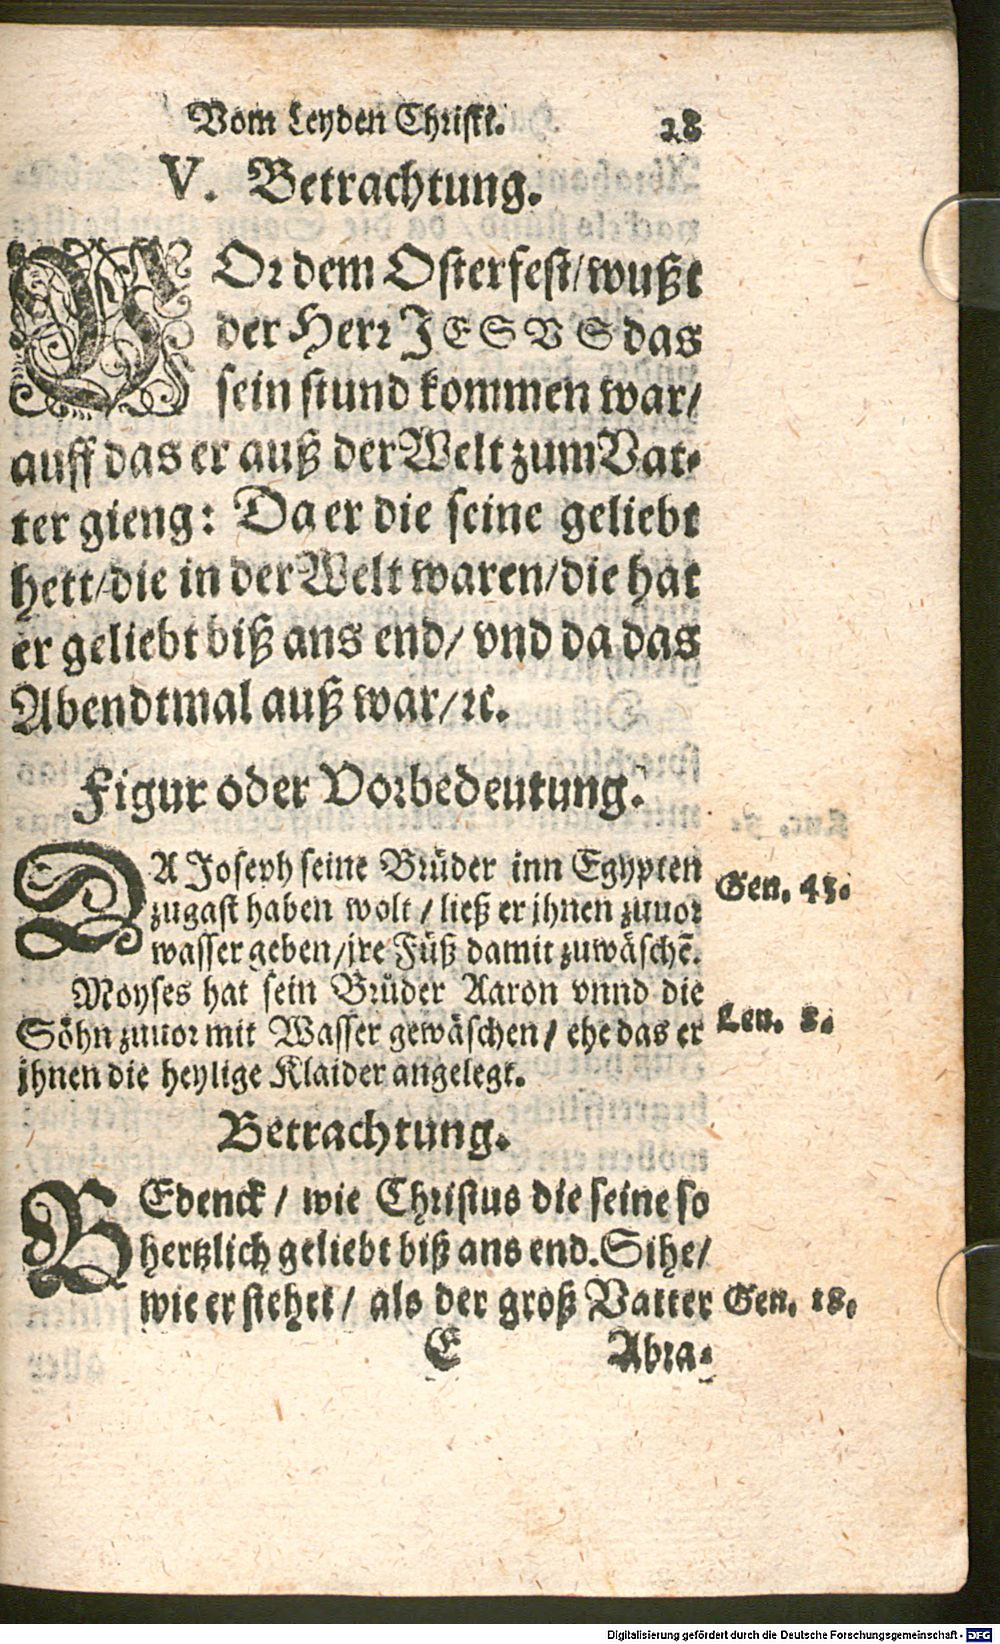 Vom Leyden Christi. 28
V. Betrachtung.
VOr dem Osterfest/ wußt
der Herr JESVS das
sein stund kommen war/
auff das er auß der Welt zum Vat-
ter gieng: Da er die seine geliebt
hett/ die in der Welt waren/ die hat
er geliebt biß ans end/ vnd da das
Abendtmal auß war/ ꝛc.
Figur oder Vorbedeutung.
DA Joseph seine Brüder inn Egypten
zugast haben wolt / ließ er jhnen zuuor
wasser geben/ jre Füß damit zuwäschẽ.
Gen. 43.
Moyses hat sein Brůder Aaron vnnd die
Söhn zuuor mit Wasser gewäschen / ehe das er
jhnen die heylige Klaider angelegt.
Leu. 8.
Betrachtung.
BEdenck / wie Christus die seine so
hertzlich geliebt biß ans end. Sihe/
wie er stehet / als der groß Vatter
Gen. 18.
E Abra-
Digitalisierung gefördert durch die Deutsche Forschungsgemeinschaft - DFG